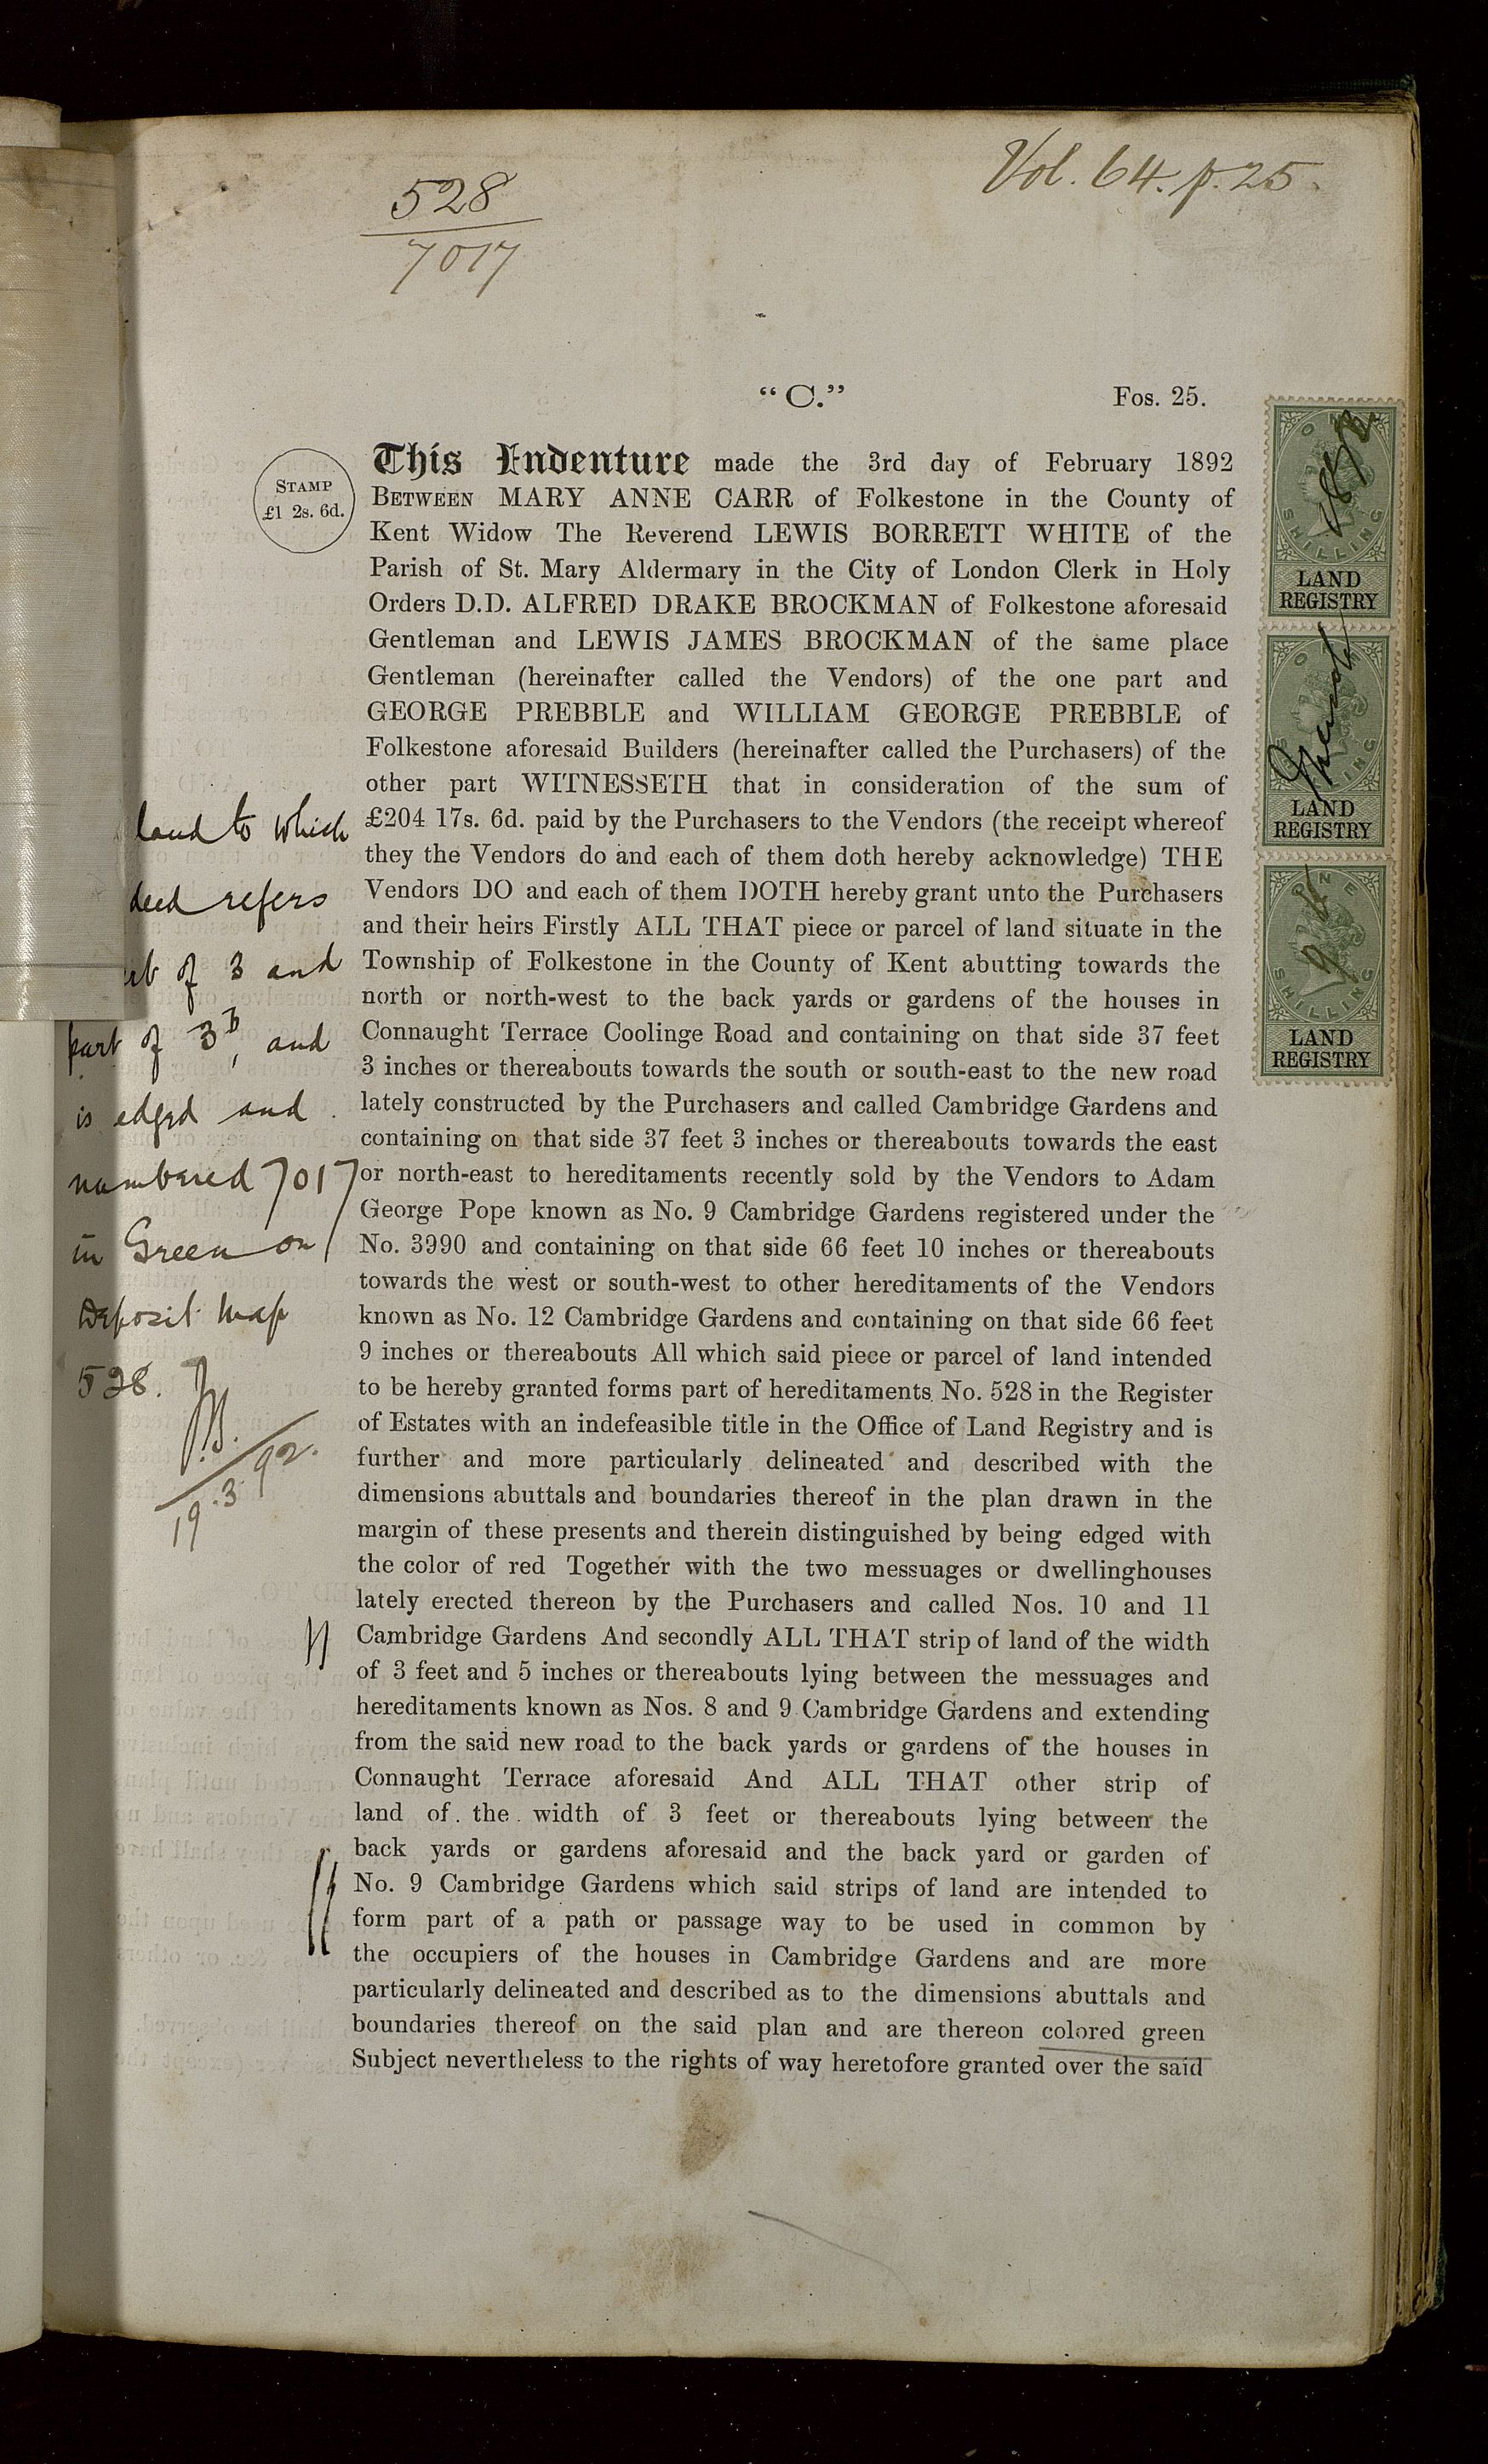 Vol. 64. p. 25.
528
7017
"C."
Fos. 25.
STAMP
£1 2s. 6d.
This Indenture made the 3rd day of February 1892
BETWEEN MARY ANNE CARR of Folkestone in the County of
Kent Widow The Reverend LEWIS BORRETT WHITE of the
Parish of St. Mary Aldermary in the City of London Clerk in Holy
Orders D.D. ALFRED DRAKE BROCKMAN of Folkestone aforesaid
Gentleman and LEWIS JAMES BROCKMAN of the same place
Gentleman (hereinafter called the Vendors) of the one part and
GEORGE PREBBLE and WILLIAM GEORGE PREBBLE of
Folkestone aforesaid Builders (hereinafter called the Purchasers) of the
other part WITNESSETH that in consideration of the sum of
£204 17s. 6d. paid by the Purchasers to the Vendors (the receipt whereof
they the Vendors do and each of them doth hereby acknowledge) THE
Vendors DO and each of them DOTH hereby grant unto the Purchasers
and their heirs Firstly ALL THAT piece or parcel of land situate in the
Township of Folkestone in the County of Kent abutting towards the
north or north-west to the back yards or gardens of the houses in
Connaught Terrace Coolinge Road and containing on that side 37 feet
3 inches or thereabouts towards the south or south-east to the new road
lately constructed by the Purchasers and called Cambridge Gardens and
containing on that side 37 feet 3 inches or thereabouts towards the east
or north-east to hereditaments recently sold by the Vendors to Adam
George Pope known as No. 9 Cambridge Gardens registered under the
No. 3990 and containing on that side 66 feet 10 inches or thereabouts
towards the west or south-west to other hereditaments of the Vendors
known as No. 12 Cambridge Gardens and containing on that side 66 feet
9 inches or thereabouts All which said piece or parcel of land intended
to be hereby granted forms part of hereditaments No. 528 in the Register
of Estates with an indefeasible title in the Office of Land Registry and is
further and more particularly delineated and described with the
dimensions abuttals and boundaries thereof in the plan drawn in the
margin of these presents and therein distinguished by being edged with
the color of red Together with the two messuages or dwellinghouses
lately erected thereon by the Purchasers and called Nos. 10 and 11
Cambridge Gardens And secondly ALL THAT strip of land of the width
of 3 feet and 5 inches or thereabouts lying between the messuages and
hereditaments known as Nos. 8 and 9 Cambridge Gardens and extending
from the said new road to the back yards or gardens of the houses in
Connaught Terrace aforesaid And ALL THAT other strip of
land of the width of 3 feet or thereabouts lying between the
back yards or gardens aforesaid and the back yard or garden of
No. 9 Cambridge Gardens which said strips of land are intended to
form part of a path or passage way to be used in common by
the occupiers of the houses in Cambridge Gardens and are more
particularly delineated and described as to the dimensions abuttals and
boundaries thereof on the said plan and are thereon colored green
Subject nevertheless to the rights of way heretofore granted over the said
land to which
deed refers
of 3 and
part of 3b, and
is edged and
numbered 7017
in Green on
Deposit Map
528.
19.3.92.
ONE
SHILLING
LAND
REGISTRY
ONE
SHILLING
LAND
REGISTRY
ONE
SHILLING
LAND
REGISTRY